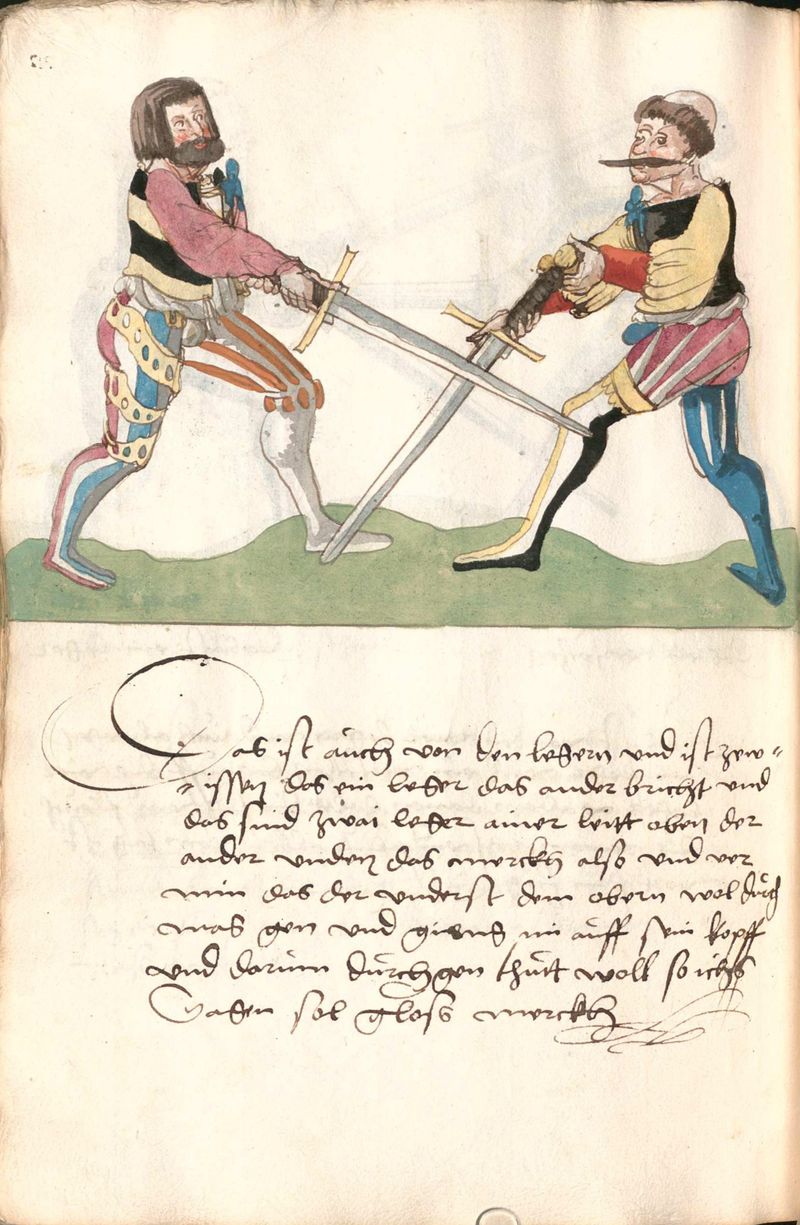 Das ist aüch von den legern vnd ist zew=
=issen das ein leger das ander bricht vnd
das sind zwai leger ainer leitt oben der
ander vnden das merckh also vnd ver
nim das der vnderst dem obern wol dürch
mas gen vnd gieng im aüff sein kopff
vnd darumm dürchgen thütt woll so ichs
sagen sol gloss merckh